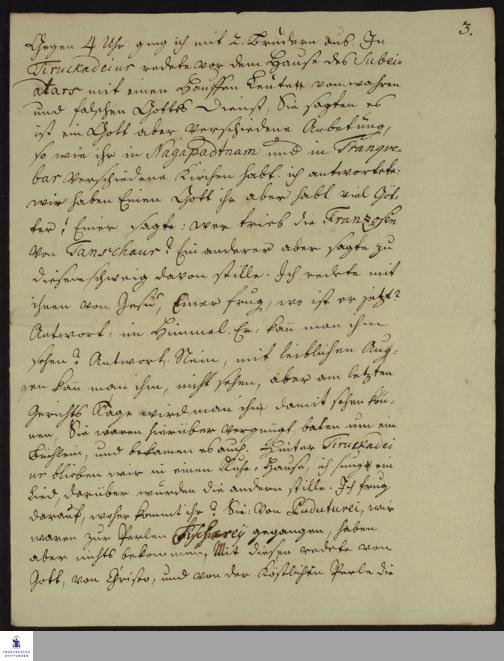 3.
Gegen 4 Uhr ging ich mit 2. Brüdern aus. In
Tiruckadeiur redete vor dem Hause des Subei-
atars mit einen Hauffen Leuten vom wahren
und falschen Gottes Dienst, Sie sagten es
ist ein Gott aber verschiedene Anbetung,
so wie ihr in Nagapadtnam und in Tranque-
bar verschiedene Kirchen habt. ich antwortete:
wir haben Einen Gott ihr aber habt viel Göt-
ter! Einer sagte: wer trieb die Franzosen
von Tanschaur? Ein anderer aber sagte zu
diesem schweig davon stille. Ich redete mit
ihnen von Jesu, Einer frug, wo ist er jetzt?
Antwort: im Himmel. Er: kan man ihm
sehen? Antwort. Nein, mit leiblichen Aug-
en kan man ihm, nicht sehen, aber am letzten
Gerichts Tage wird man ihm damit sehen kön-
nen. Sie waren hierüber vergnügt baten um ein
Büchlein, und bekamen es auch. Hinter Tiruckadei
ur blieben wir in einem Ruhe-Hause, ich sung ein
Lied, darüber wurden die andern stille. Ich frug
darauf, woher kommt ihr? Sie: Von Puduturei, wir
waren zur Perlen Fischerey gegangen, haben
aber nichts bekommen, Mit diesen redete von
Gott, von Christo, und von der Köstlichen Perle die
FRANCKESCHE
STIFTUNGEN